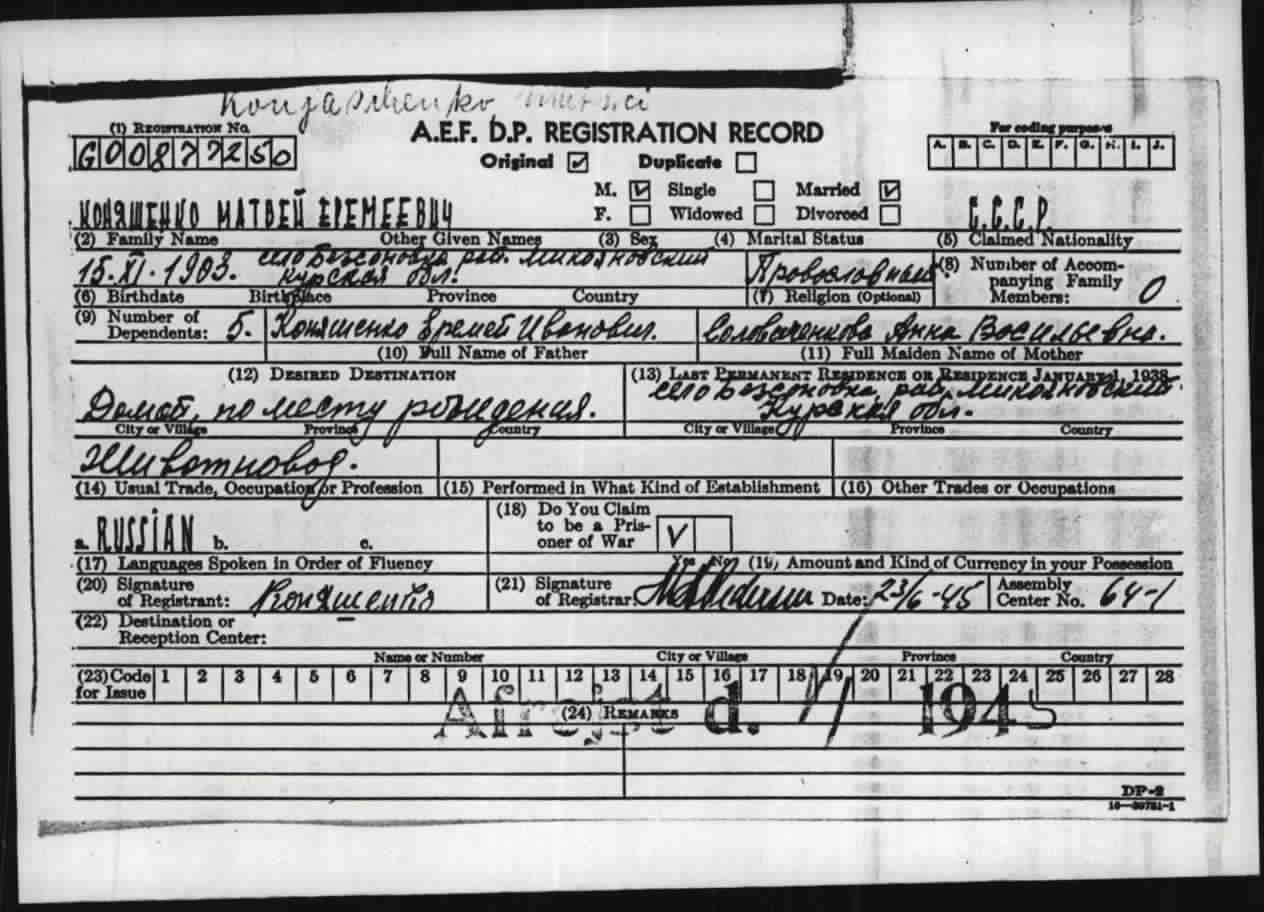 Konjaschenko,
(1) REGISTRATION NO.
G00877250
A.E.F. D.P. REGISTRATION RECORD
Original ☑ Duplicate ☐
For coding purposes
A. B. C. D. E. F. G. H. I. J.
M. ☑ Single ☐ Married ☑
F. ☐ Widowed ☐ Divorced ☐
КОНЯШЕНКО МАТВЕЙ ЕРЕМЕЕВИЧ
С.С.С.Р.
(2) Family Name Other Given Names (3) Sex (4) Marital Status (5) Claimed Nationality
15.XI.1903. село Безсоновка рай. Микояновский
Курская обл.
(6) Birthdate Birthplace Province Country (7) Religion (Optional)
(8) Number of Accompanying Family Members: 0
(9) Number of Dependents: 5.
Коняшенко Еремей Иванович.
(10) Full Name of Father
Анна Васильевна.
(11) Full Maiden Name of Mother
(12) DESIRED DESTINATION
(13) LAST PERMANENT RESIDENCE OR RESIDENCE JANUARY 1, 1938.
Домой, по месту рождения.
село Безсоновка рай. Микояновский
Курская обл.
City or Village Province Country City or Village Province Country
Животновод.
(14) Usual Trade, Occupation or Profession (15) Performed in What Kind of Establishment (16) Other Trades or Occupations
a. RUSSIAN b. c.
(17) Languages Spoken in Order of Fluency
(18) Do You Claim to be a Prisoner of War
V
Yes No (19) Amount and Kind of Currency in your Possession
(20) Signature of Registrant: Коняшенко
(21) Signature of Registrar: Date: 23/6-45 Assembly Center No. 64-1
(22) Destination or Reception Center:
Name or Number City or Village Province Country
(23) Code for Issue 1 2 3 4 5 6 7 8 9 10 11 12 13 14 15 16 17 18 19 20 21 22 23 24 25 26 27 28
Afrejst d. 1945
(24) REMARKS
DP-2
16—39781-1